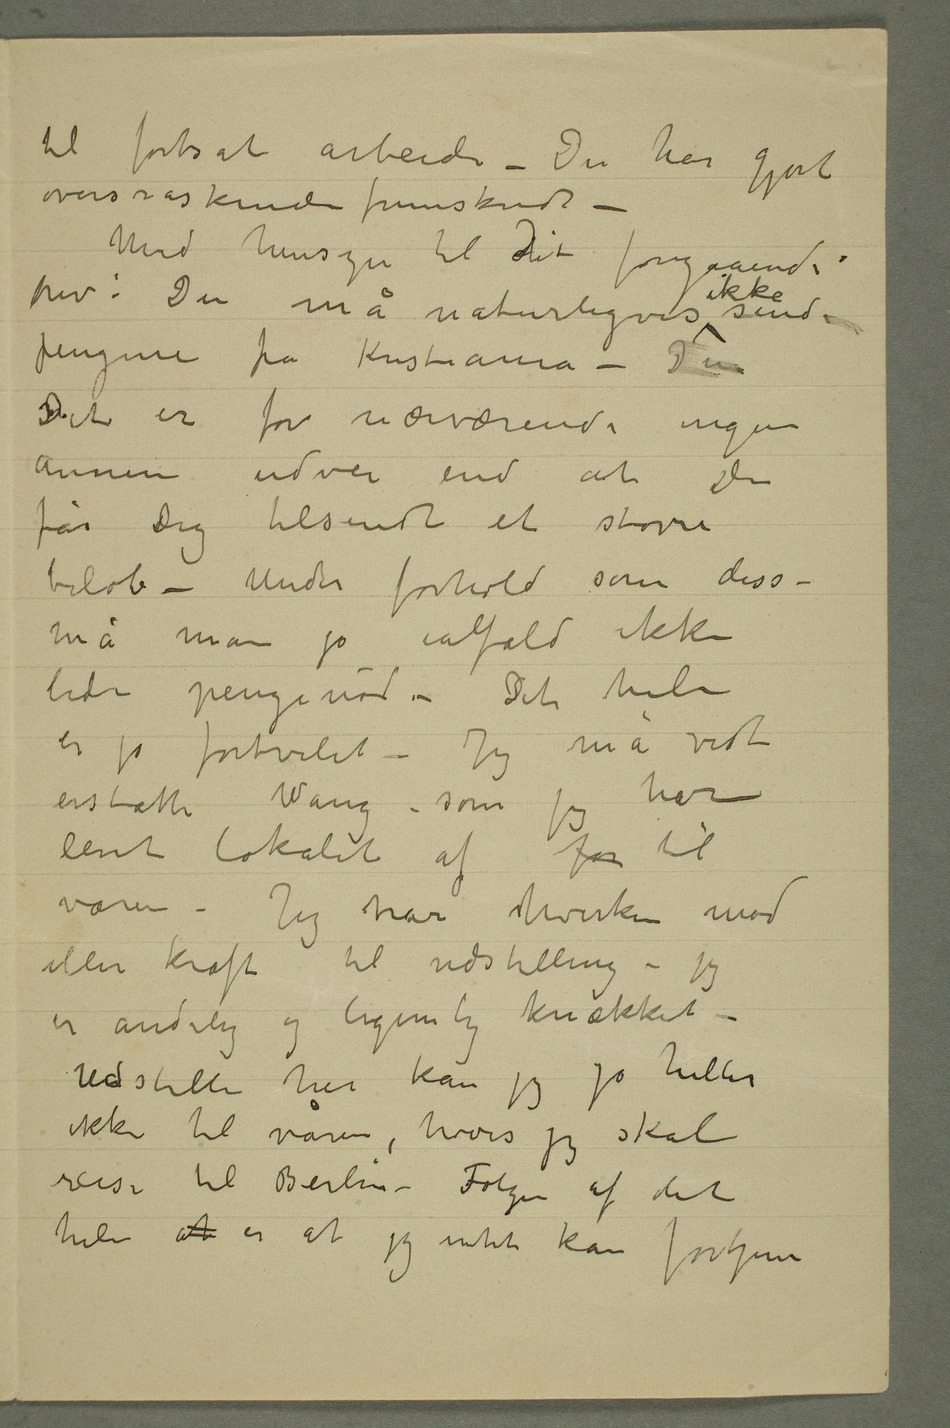 til fortsat arbeide – Du har gjort
overraskende fremskridt –
Med hensyn til Dit foregaaende
brev: Du må naturligvis ikke sende
pengene fra Kristiania –
Det er for nærværende ingen
annen udvei end at Du
får Dig tilsendt et større
beløb – Under forhold som disse
må man jo ialfald ikke
lide pengenød – Det hele
er jo fortvilet – Jeg må vidt
erstatte Wang – som jeg har
leiet lokalet af for til
våren – Jeg har hverken mod
eller kraft til udstilling – jeg
er åndelig og legemlig knækket –
Udstille her kan jeg jo heller
ikke til våren, hvis jeg skal
reise til Berlin – Følgen af det
hele at er at jeg intet kan fortjene